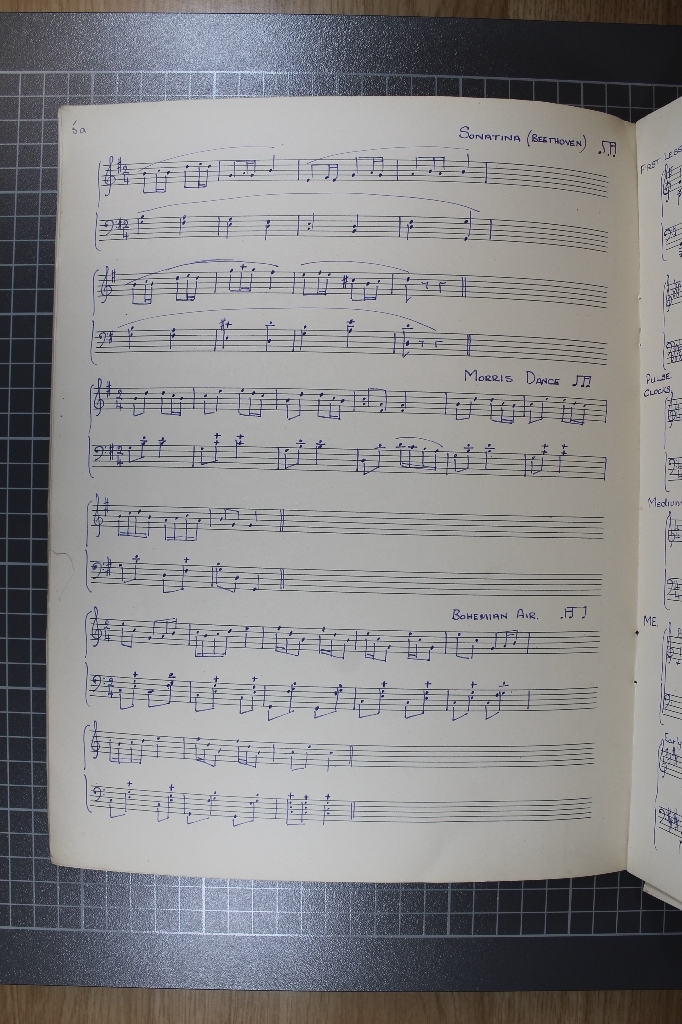 5a
SONATINA (BEETHOVEN)
MORRIS DANCE
BOHEMIAN AIR.
FIRST LESS
PULSE
CLOCKS
MEDIUM
ME.